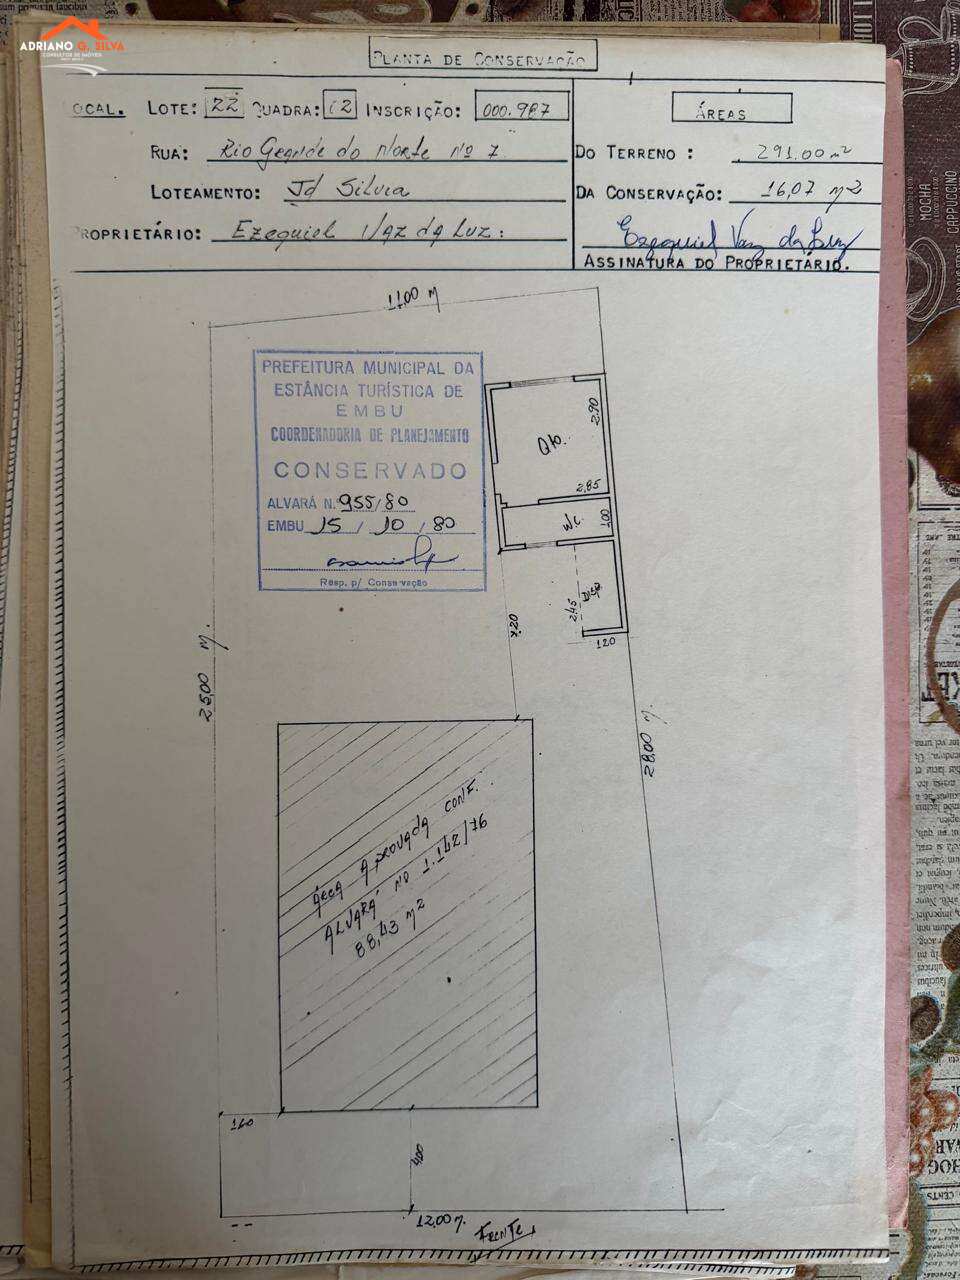 ADRIANO G. SILVA
CONSULTOR DE IMÓVEIS
PLANTA DE CONSERVAÇÃO
OCAL. LOTE: 22 QUADRA: 12 INSCRIÇÃO: 000.987
RUA: Rio Grande do Norte Nº 7
LOTEAMENTO: Jd Silvia
PROPRIETÁRIO: Ezequiel Vaz da Luz.
ÁREAS
DO TERRENO: 291.00 m²
DA CONSERVAÇÃO: 16,07 m2
Ezequiel Vaz da Luz
ASSINATURA DO PROPRIETÁRIO.
11,00 M
PREFEITURA MUNICIPAL DA
ESTÂNCIA TURÍSTICA DE
EMBU
COORDENADORIA DE PLANEJAMENTO
CONSERVADO
ALVARÁ N. 955/80
EMBU 15 / 10 / 80
Resp. p/ Conservação
Qto.
2,90
2,85
W.C.
1,00
Disp
2,45
1,20
7,20
25,00 M.
28,00 M.
ÁREA APROVADA CONF.
ALVARÁ NO 1.142/76
88,43 M²
1,60
4,00
12,00 M.
FRENTE
MOCHA
CAPPUCCINO